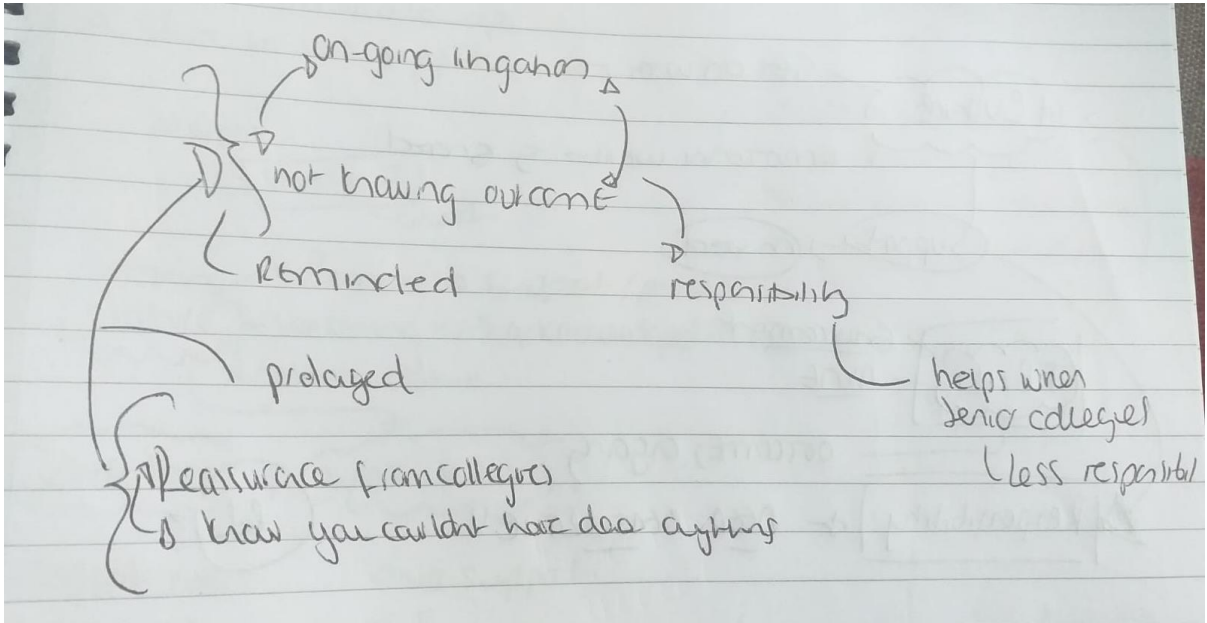 on-going litigation
not knowing outcome
Reminded
responsibility
prolonged
helps when
senior collegues
less responsibl
Reassurance from collegues
know you couldnt have don anything